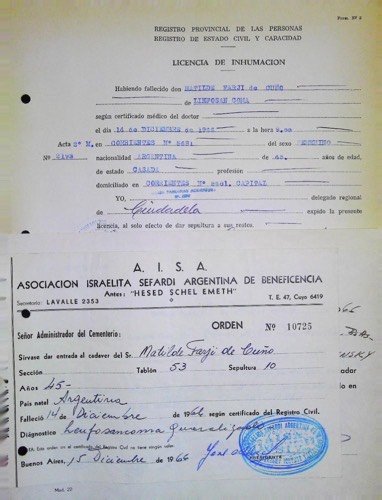 Form. Nº 9
REGISTRO PROVINCIAL DE LAS PERSONAS
REGISTRO DE ESTADO CIVIL Y CAPACIDAD
LICENCIA DE INHUMACION
Habiendo fallecido don MATILDE FARJI de CUÑO
de LINFOSAN COMA
según certificado médico del doctor
el día 14 de DICIEMBRE de 1966 a la hora
Acta 2ª M. en CORRIENTES Nº del sexo FEMENINO
Nº nacionalidad ARGENTINA de años de edad,
de estado CASADA profesión
domiciliado en CORRIENTES Nº CAPITAL
YO, delegado regional
de Ciudadela expido la presente
licencia, al solo efecto de dar sepultura a sus restos.
A. I. S. A.
ASOCIACION ISRAELITA SEFARDI ARGENTINA DE BENEFICENCIA
Antes: "HESED SCHEL EMETH"
Secretaría: LAVALLE 2353 T. E. 47, Cuyo 6419
ORDEN Nº 10725
Señor Administrador del Cementerio:
Sírvase dar entrada al cadaver del Sr. Matilde Farji de Cuño
Sección Tablón 53 Sepultura 10
Años 45-
País natal Argentina
Falleció 14 de Diciembre de 1966 según certificado del Registro Civil.
Diagnóstico
NOTA: Esta orden sin el certificado del Registro Civil no tiene ningún valor.
Buenos Aires, 15 Diciembre de 1966
PRESIDENTE
Mod. 22